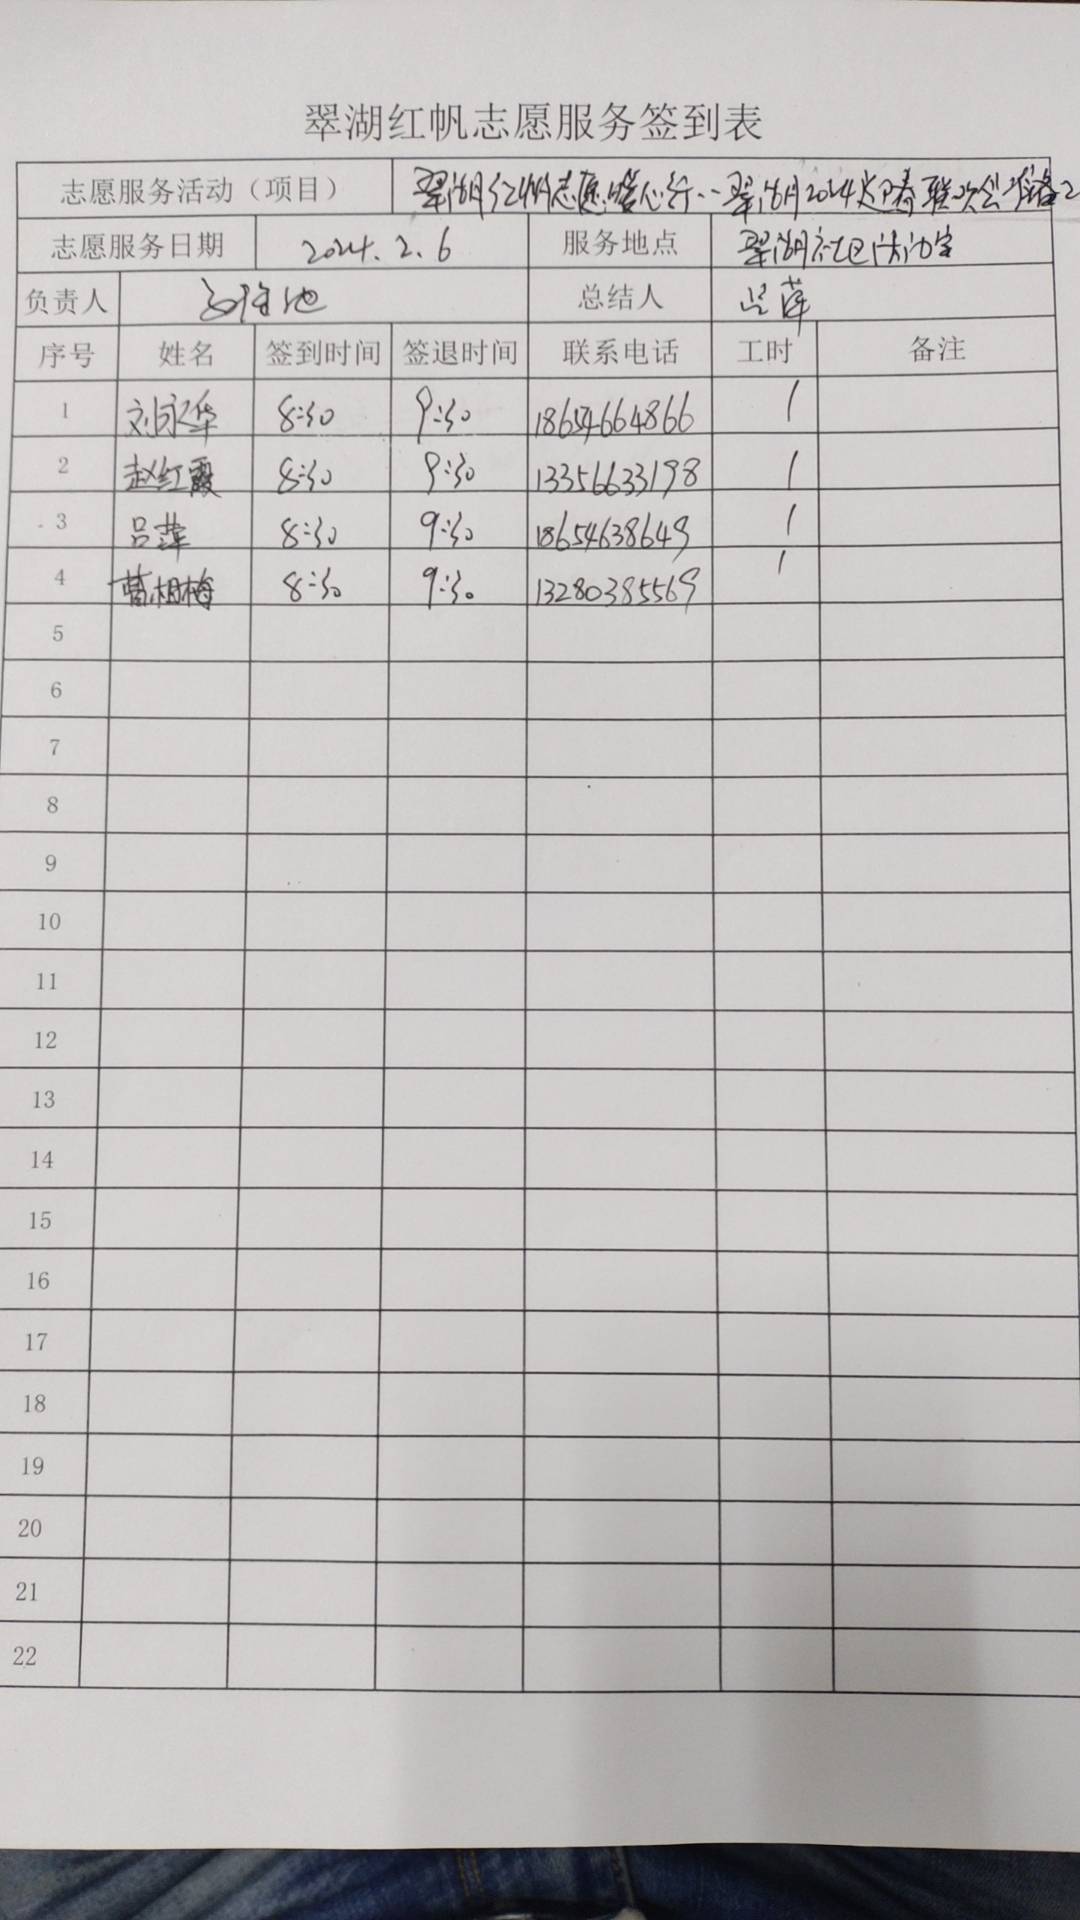 翠湖红帆志愿服务签到表
志愿服务活动（项目） 翠湖红帆志愿暖心行--翠湖2024迎春联欢会准备2
志愿服务日期 2024.2.6 服务地点 翠湖社区活动室
负责人 总结人 吕萍
序号 姓名 签到时间 签退时间 联系电话 工时 备注
1 刘永华 8:30 9:30 18654664866 1
2 赵红霞 8:30 9:30 13356633198 1
3 吕萍 8:30 9:30 18654638649 1
4 曹相梅 8:30 9:30 13280385569 1
5
6
7
8
9
10
11
12
13
14
15
16
17
18
19
20
21
22